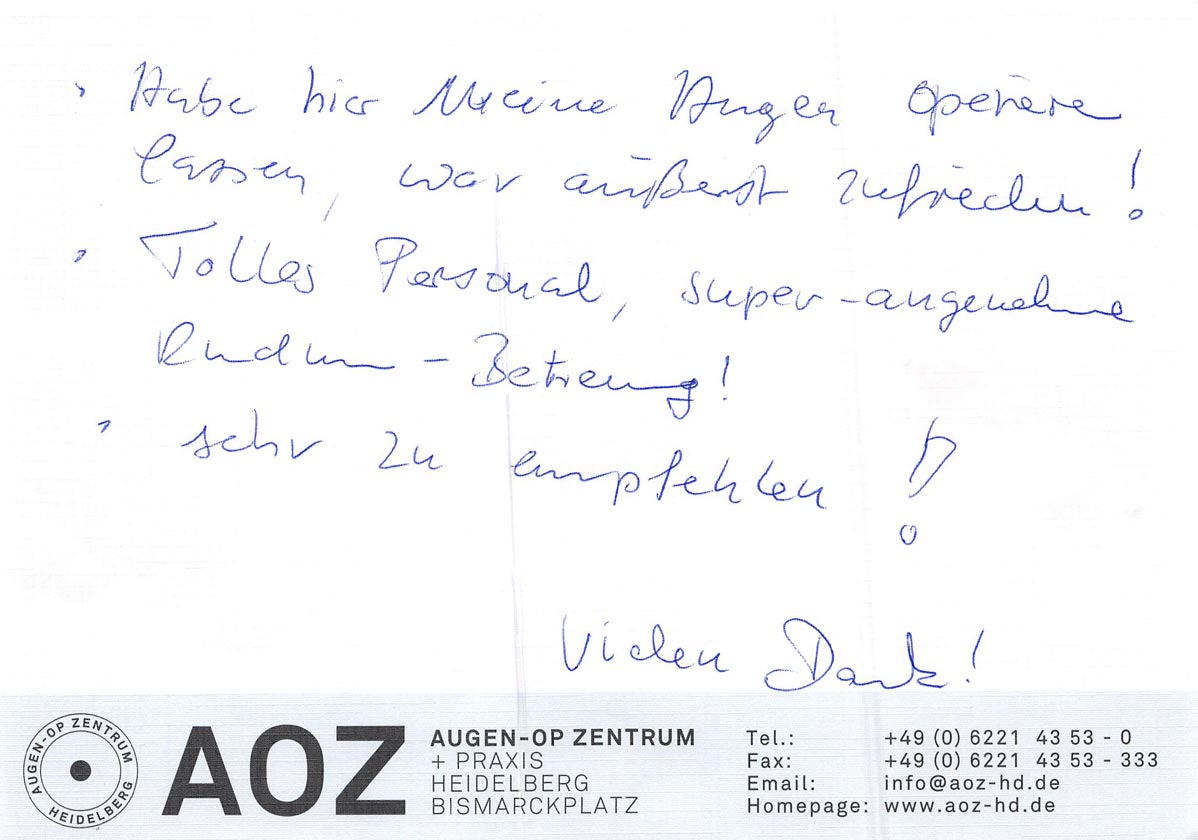 Habe hier Meine Augen operiere
lassen, war äußerst zufrieden!
Tolles Personal, super-angenehme
Rundum-Betreuung!
sehr zu empfehlen!
Vielen Dank!
AUGEN-OP ZENTRUM
HEIDELBERG
AOZ
AUGEN-OP ZENTRUM
+ PRAXIS
HEIDELBERG
BISMARCKPLATZ
Tel.: +49 (0) 6221 43 53 - 0
Fax: +49 (0) 6221 43 53 - 333
Email: info@aoz-hd.de
Homepage: www.aoz-hd.de